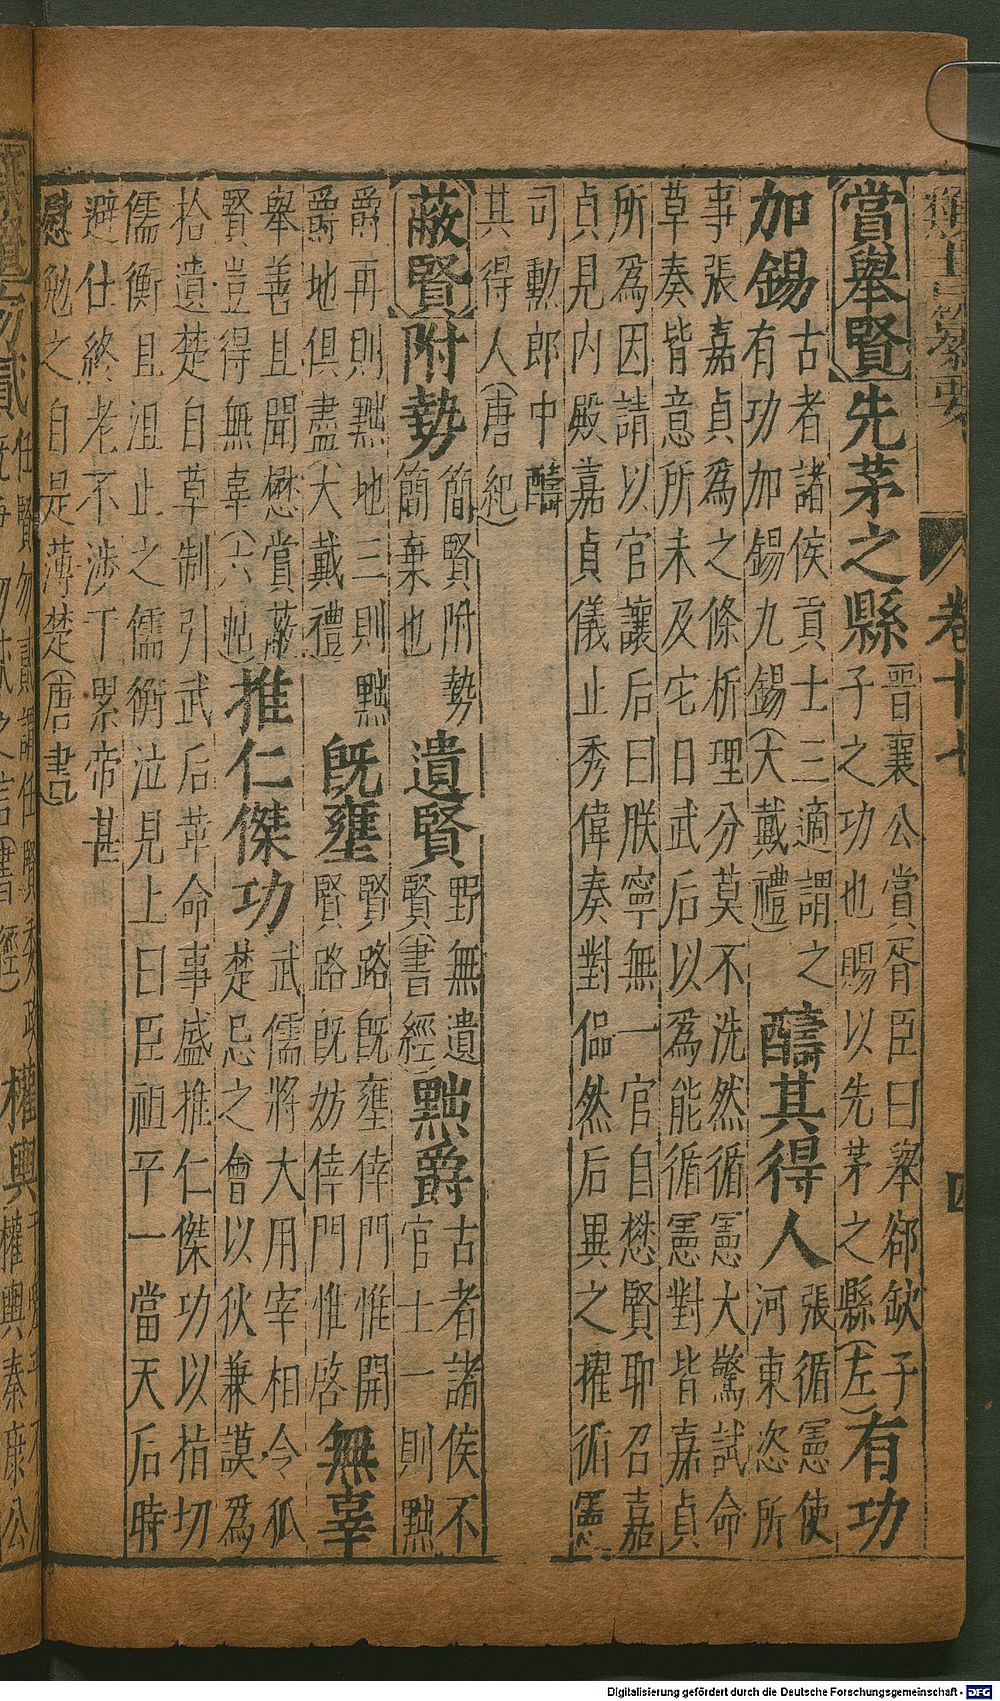 卷十七
賞舉賢先茅之縣
晉襄公賞胥臣曰舉郤缺子
子之功也賜以先茅之縣(左)
有功
加錫
古者諸侯貢士三適謂之
有功加錫九錫(大戴禮)
醻其得人
張循憲使
河東恣所
事張嘉貞為之條析理分莫不洗然循憲大驚試命
草奏皆意所未及它日武后以為能循憲對皆嘉貞
所為因請以官讓后曰朕寧無一官自懋賢耶召嘉
貞見内殿嘉貞儀止秀偉奏對偘然后異之擢循憲
司勳郎中醻
其得人(唐紀)
蔽賢附勢
簡賢附勢
簡棄也
遺賢
野無遺
賢(書經)
黜爵
古者諸侯不
官士一則黜
爵再則黜地三則黜
爵地俱盡(大戴禮)
旣壅
賢路旣壅倖門惟開
賢路旣妨倖門惟啓
無辜
舉善且聞懋賞蔽
賢豈得無辜(六帖)
推仁傑功
武儒將大用宰相令狐
楚忌之會以狄兼謨為
拾遺楚自草制引武后革命事盛推仁傑功以指切
儒衡且沮止之儒衡泣見上曰臣祖平一當天后時
避仕終老不涉丁累帝甚
慰勉之自是薄楚(唐書)
權輿
權輿秦康公
Digitalisierung gefördert durch die Deutsche Forschungsgemeinschaft - DFG